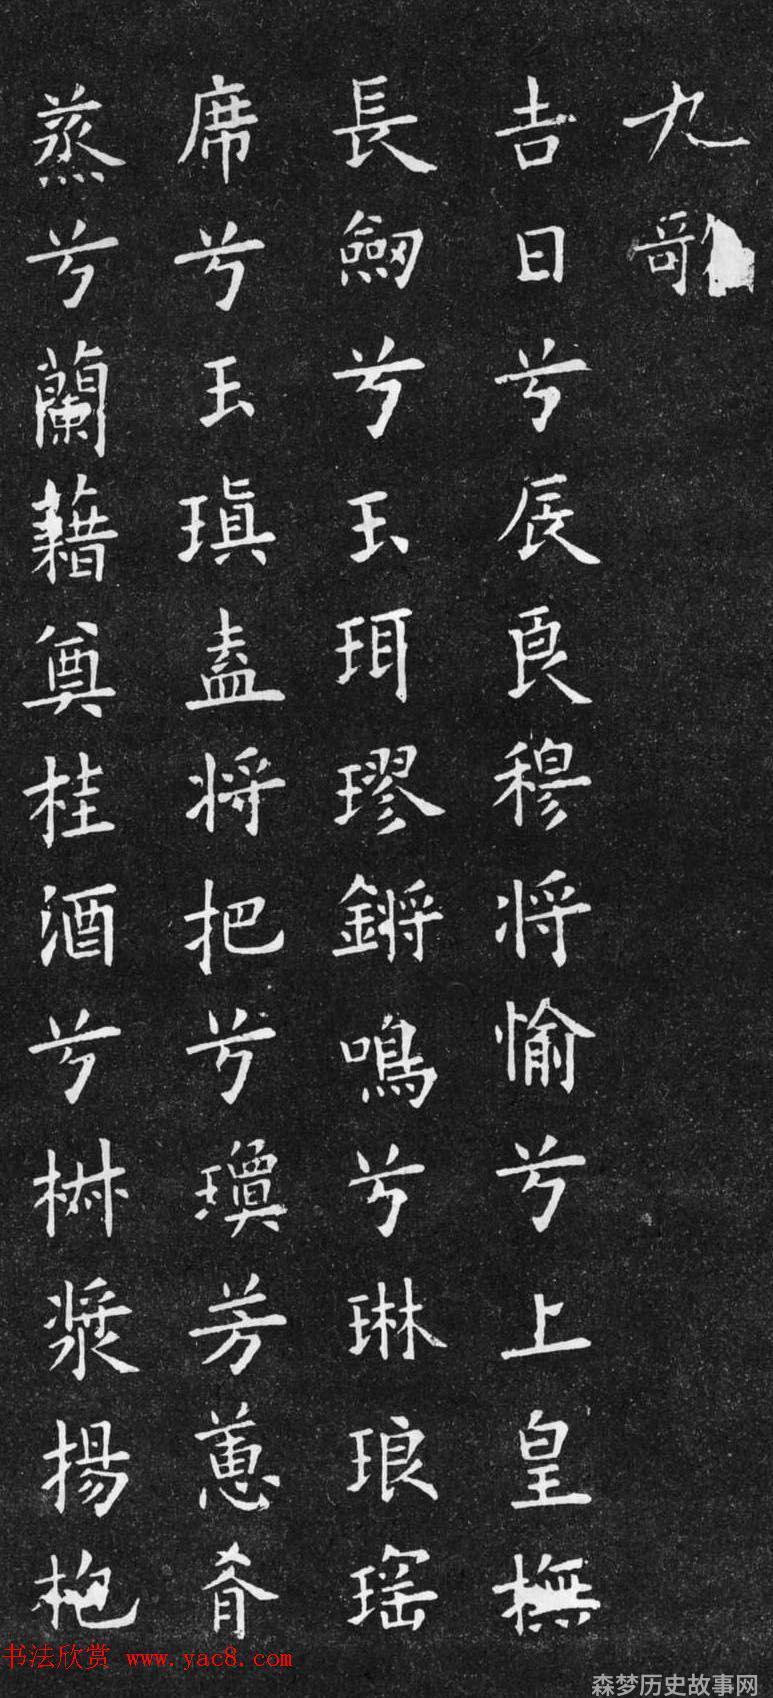 九歌
吉日兮辰良穆将愉兮上皇撫
長劒兮玉珥璆鏘鳴兮琳琅瑤
席兮玉瑱盍将把兮瓊芳蕙肴
蒸兮蘭藉奠桂酒兮椒漿揚枹
书法欣赏 www.yac8.com
森梦历史故事网